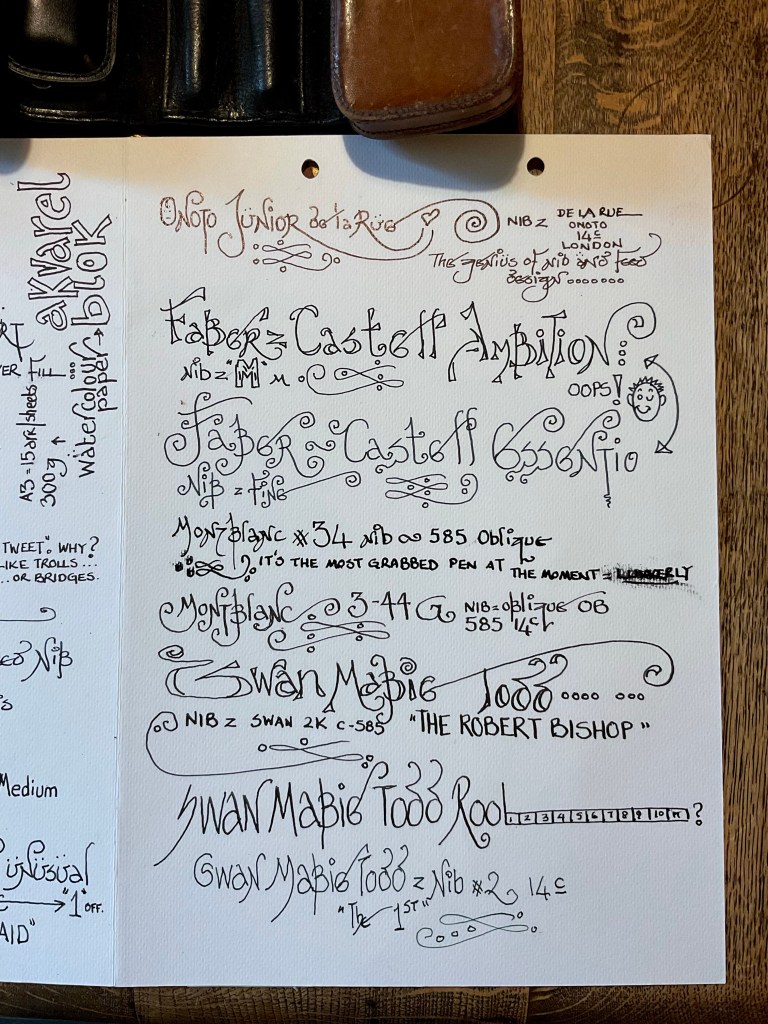 akvarel
blok
watercolour
paper
A3 = 15 ark/sheets
300g
TWEET". WHY?
LIKE TROLLS...
...OR BRIDGES.
Nib
Medium
ünüsüal
"1" OFF.
ONOTO JÜNIOR De la Rüe
NIB z DE LA RUE
ONOTO
14c
LONDON
The genius of nib and feed
design........
Faber z Castell Ambition
Nib z "M" M.
OOPS!
Faber ~ Castell Essentio
Nib z fine
Montblanc #34 nib ∞ 585 Oblique
IT'S THE MOST GRABBED PEN AT THE MOMENT =
Montblanc 3-44 G NIB = oblique OB
585 14ct
Swan Mabie Todd .... ...
NIB z SWAN 2K C-585 "THE ROBERT BISHOP"
Swan Mabie Todd Rool 1 2 3 4 5 6 7 8 9 10 11 ?
Swan Mabie Todd z Nib #2 14c
"The 1ST"